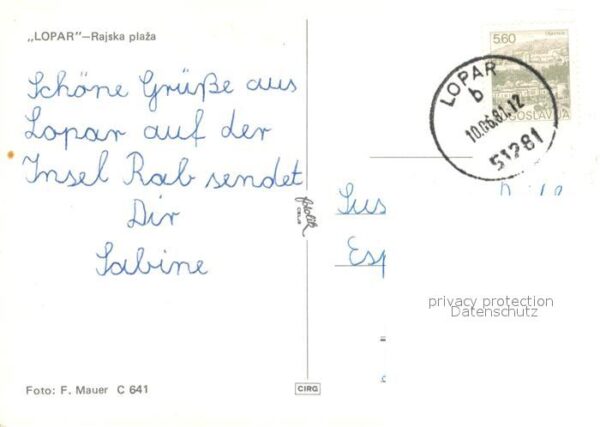 „LOPAR"—Rajska plaža
5.60
JUGOSLAVIJA
LOPAR
b
10.06.83.12
51281
Schöne Grüße aus
Lopar auf der
Insel Rab sendet
Dir
Sabine
Sus
Esp
privacy protection
Datenschutz
Foto: F. Mauer C 641
CIRG